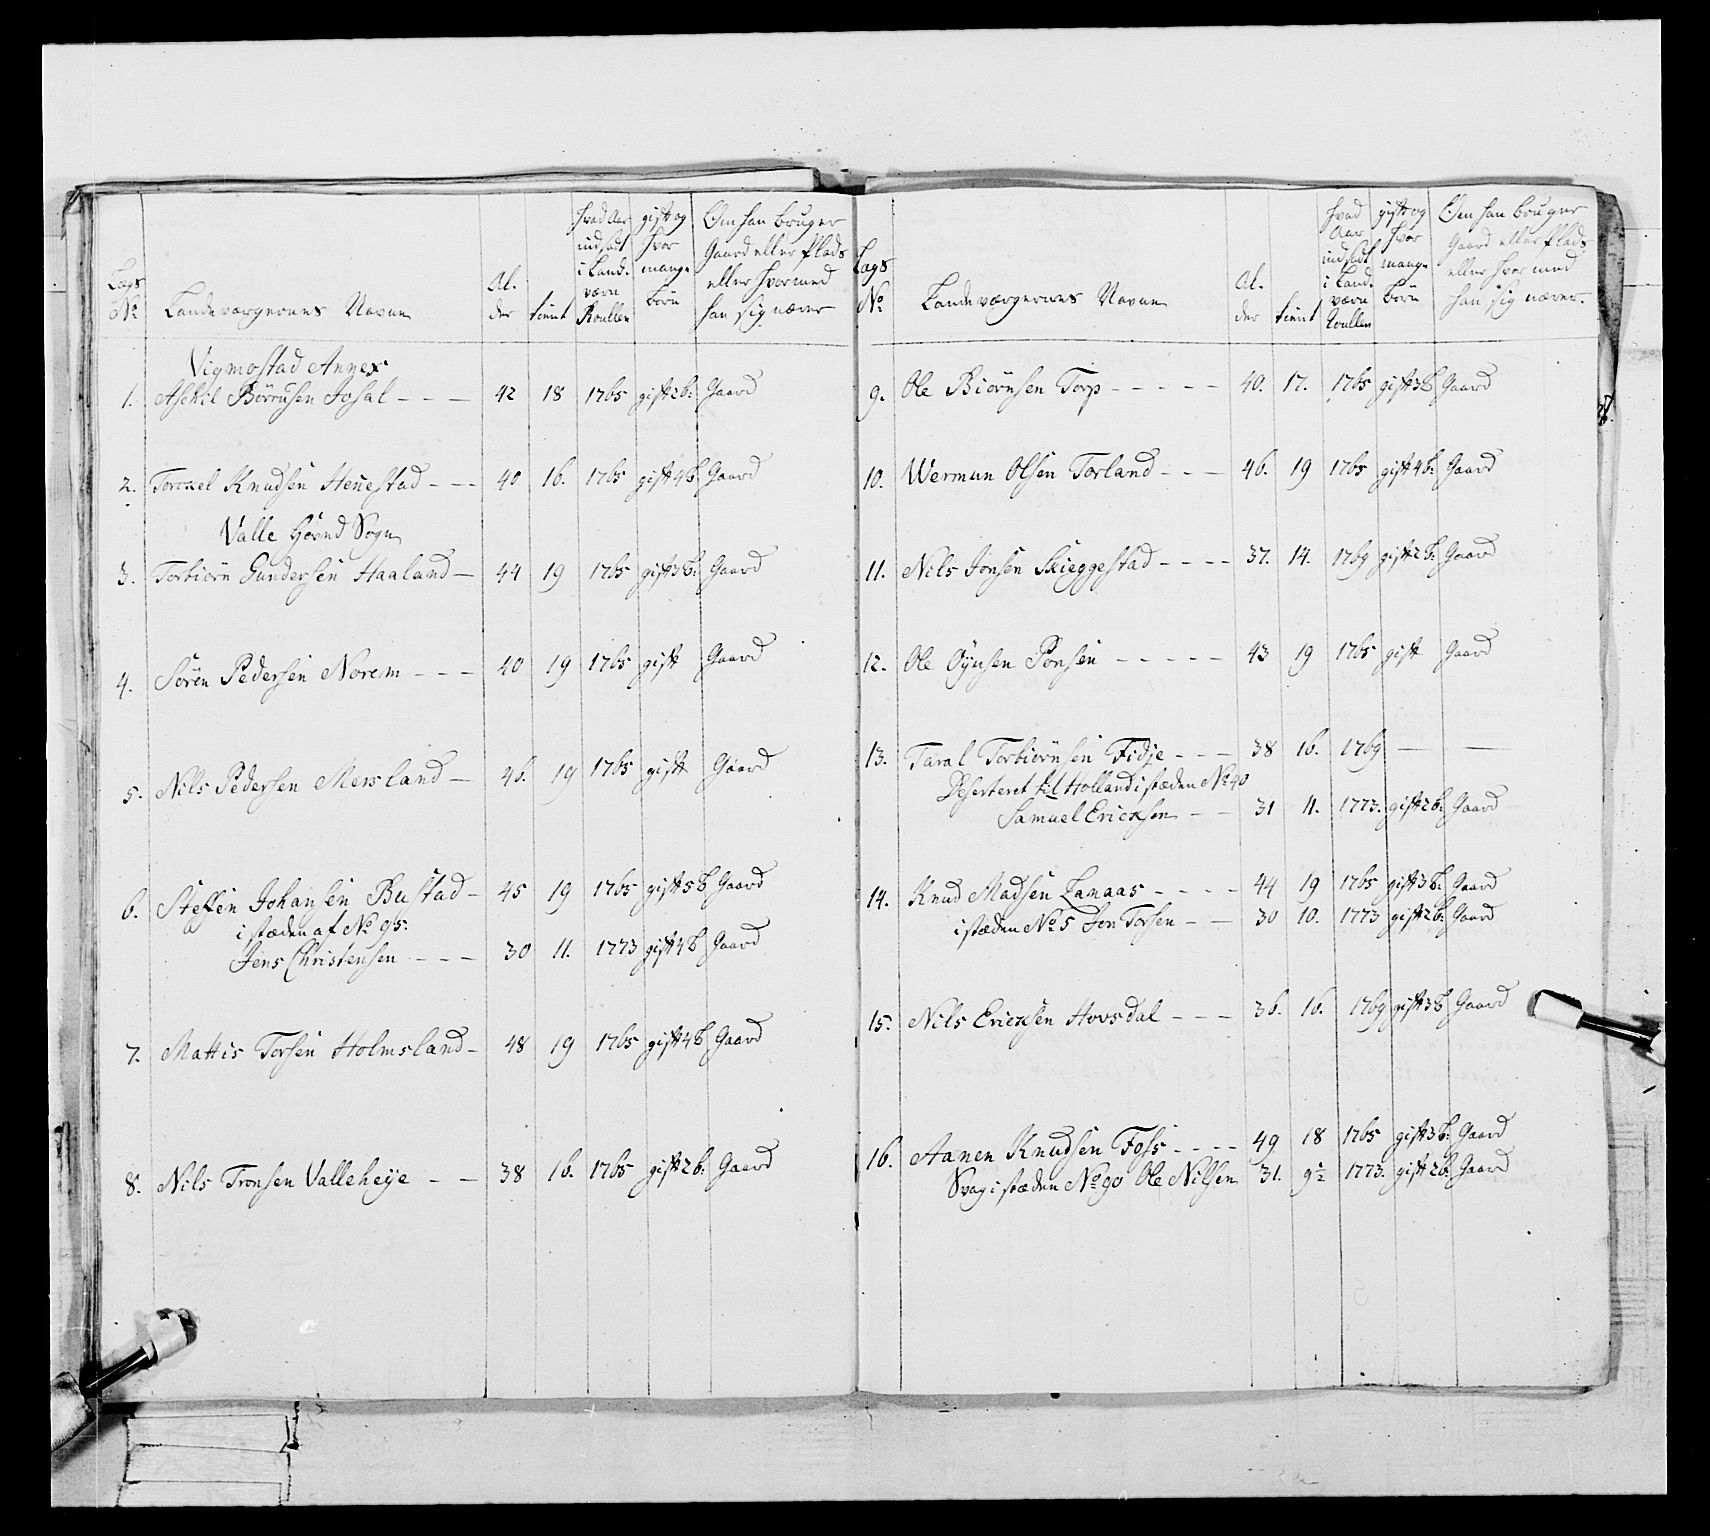 Lægs No | Landeværgernes Navne | Al. der | tient | hvad Aar indsadt i Land. værn Roullen | gift og hvor mange børn | Om han bruger Gaard eller Plads eller hvormed han sig nærer
Vigmostad Annex
1. Aschil Börnsen Josal - - - 42 18 1765 gift 2b: Gaard
2. Torckel Knudsen Henestad - - - 40 16. 1765 gift 4b. Gaard
Valle Hoved Sogn
3. Torbiörn Gundersen Haaland - 44 19 1765 gift 3b: Gaard
4. Sören Pedersen Norem - - - 40 19 1765 gift Gaard
5. Nils Pedersen Mersland - 46. 19 1765 gift Gaard
6. Steffen Johansen Bustad - 45 19 1765 gift 5b Gaard
i stæden af No 95:
Jens Christensen - - - 30 11. 1773 gift 4b Gaard
7. Mattis Torsen Holmsland - 48 19 1765 gift 4b Gaard
8. Nils Tronsen Valleheÿe - - 38 16. 1765 gift 2b: Gaard
Lægs No | Landeværgernes Navne | Al. der | tient | hvad Aar indsadt i Land. værn Roullen | gift og hvor mange børn | Om han bruger Gaard eller Plads eller hvormed han sig nærer.
9. Ole Biörnsen Torp - - - - - 40. 17. 1765 gift 3b Gaard
10. Wermun Olsen Torland - - - 46. 19 1765 gift 4b: Gaard
11. Nils Jonsen Skieggestad - - - - 37. 14. 1769 gift 2b: Gaard
12. Ole Oÿnsen Ponsen - - - - - 43 19 1765 gift Gaard
13. Taral Torbiörnsen Fidje - - - 38 16. 1769 — —
Deserteret til Holland i stæden No 40
Samuel Ericksen - - 31 11. 1773. gift 2b: Gaard
14. Knud Madsen Lanaas - - - - 44 19 1765 gift 3b: Gaard
i stæden No 5 Jon Torsen - - 30 10. 1773 gift 2b: Gaard
15. Nils Ericksen Hovsdal - - - 36. 16. 1769 gift 3b Gaard
16. Aanen Knudsen Foss - - - - 49 18 1765 gift 3b: Gaard
Svag i stæden No 90 Ole Nilsen 31. 9½ 1773. gift 2b. Gaard